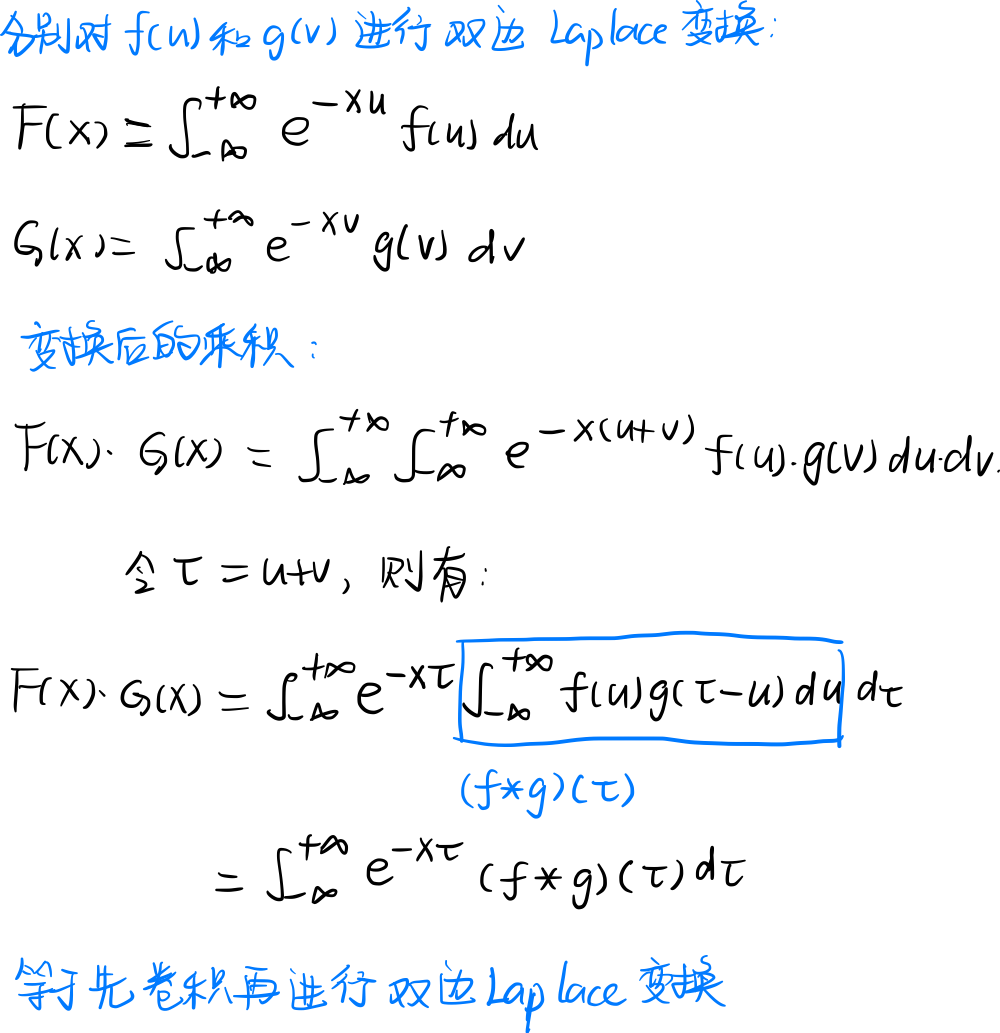 分别对 f(u) 和 g(v) 进行双边 Laplace 变换:
F(x) = ∫_{-∞}^{+∞} e^{-xu} f(u) du
G(x) = ∫_{-∞}^{+∞} e^{-xv} g(v) dv
变换后的乘积:
F(x)· G(x) = ∫_{-∞}^{+∞} ∫_{-∞}^{+∞} e^{-x(u+v)} f(u)·g(v) du·dv.
令 τ = u+v, 则有:
F(x)· G(x) = ∫_{-∞}^{+∞} e^{-xτ} ∫_{-∞}^{+∞} f(u)g(τ-u) du dτ
(f*g)(τ)
= ∫_{-∞}^{+∞} e^{-xτ} (f*g)(τ) dτ
等于先卷积再进行双边 Laplace 变换